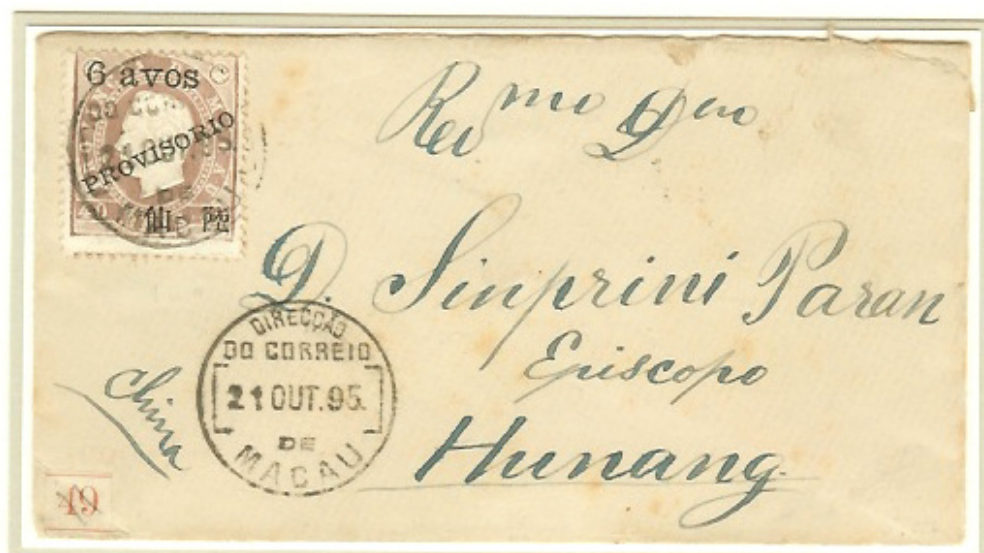 6 avos
PROVISORIO
仙 陸
Rev mo Dno
D. Sinprini Paran
Episcopo
Hunang
China
DIRECÇÃO
DO CORREIO
21 OUT. 95.
DE
MACAU
49